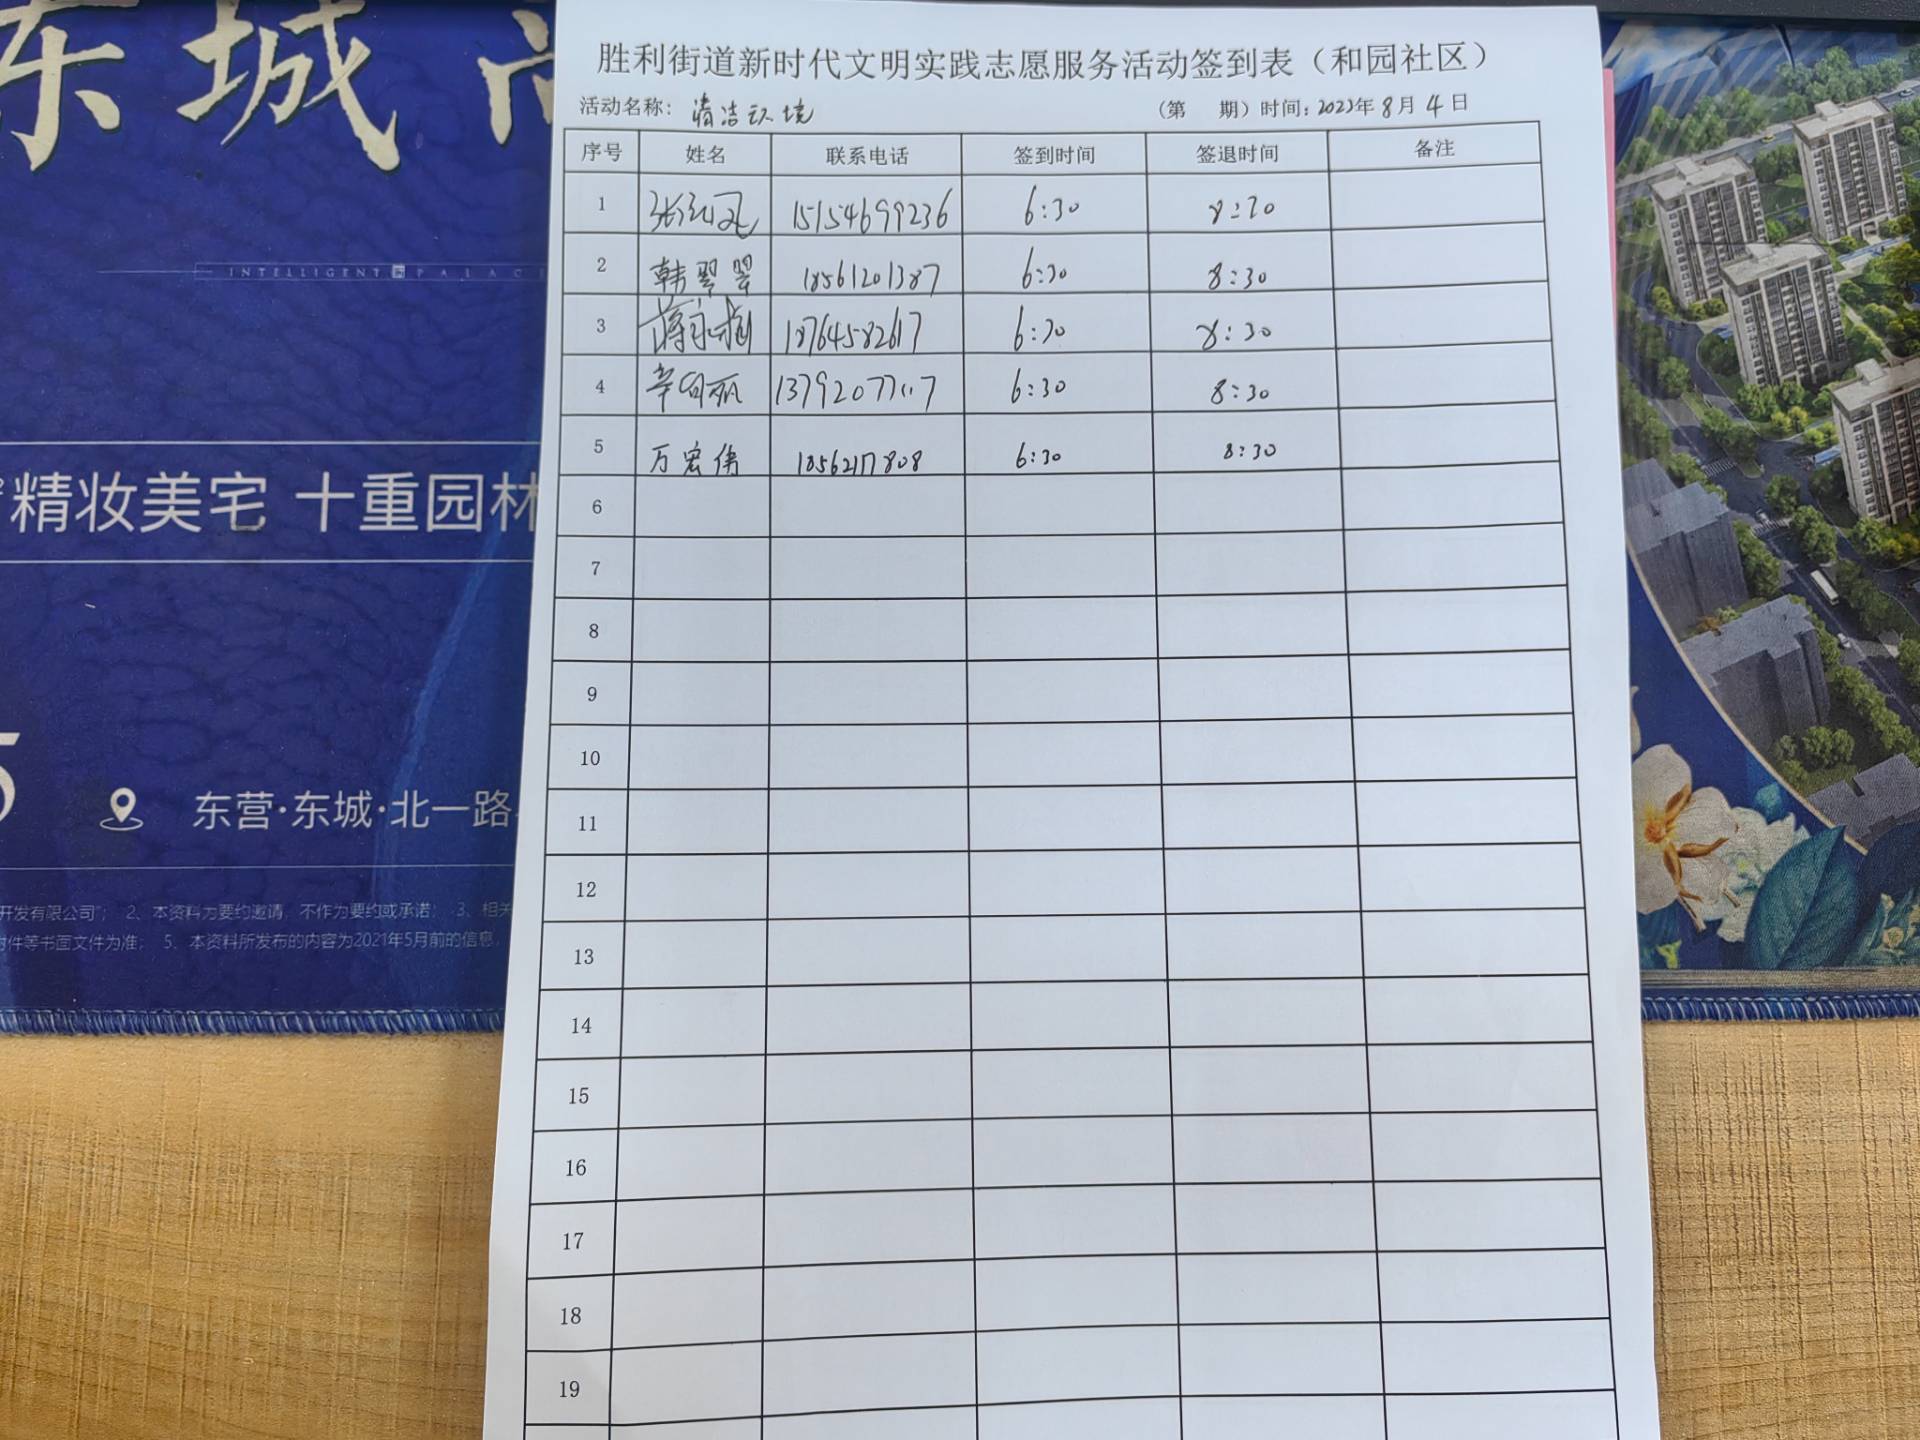 东城
INTELLIGENT PALACE
精妆美宅 十重园林
5
东营·东城·北一路
开发有限公司”; 2、本资料为要约邀请,不作为要约或承诺; 3、相关
附件等书面文件为准; 5、本资料所发布的内容为2021年5月前的信息,
胜利街道新时代文明实践志愿服务活动签到表（和园社区）
活动名称: 清洁环境 （第 期）时间: 2022年8月4日
序号 姓名 联系电话 签到时间 签退时间 备注
1 15154699236 6:30 8:30
2 韩翠翠 18561201387 6:30 8:30
3 18764582617 6:30 8:30
4 6:30 8:30
5 万宏伟 18562117808 6:30 8:30
6
7
8
9
10
11
12
13
14
15
16
17
18
19